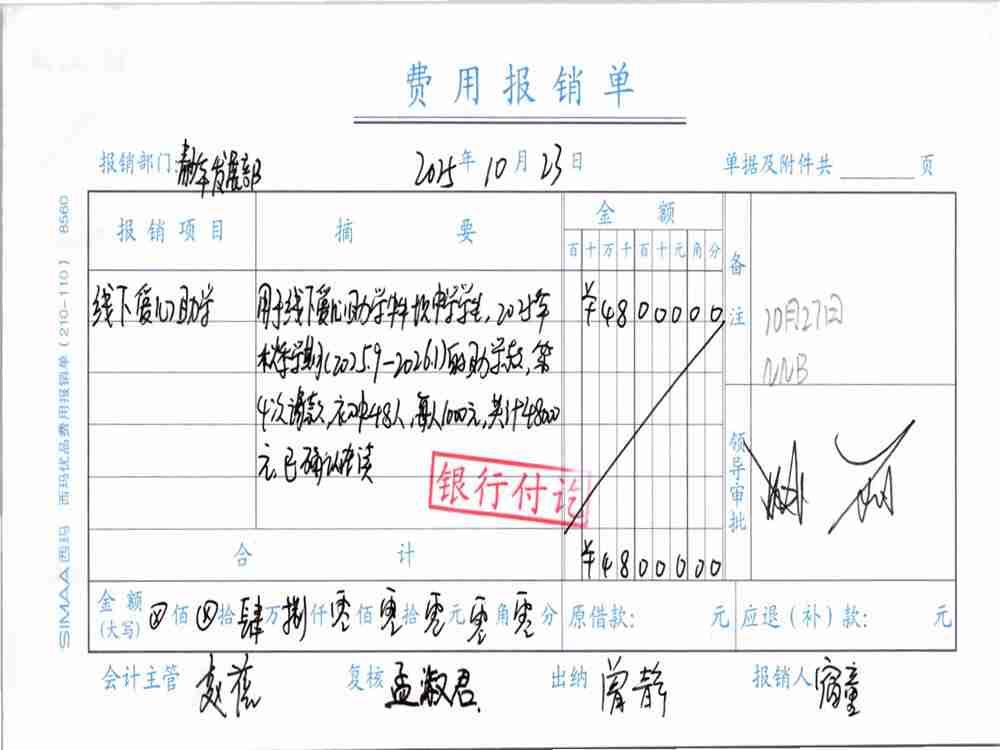 费用报销单
报销部门: 发展部 2025年10月23日 单据及附件共 页
报销项目 摘要 金额 备注
百十万千百十元角分
线下爱心助学 用于线下爱心助学 学生,2025年 ¥4800000
学期(2025.9-2026.1)的助学款,第
4次请款,初中48人,每人1000元,共计48000
元已确认在读
10月27日
NNB
银行付讫
领导审批
合计 ¥4800000
金额(大写) ⊗佰⊗拾肆万捌仟零佰零拾零元零角零分 原借款: 元 应退(补)款: 元
会计主管 赵蕊 复核 孟淑君 出纳 曾静 报销人 童
SIMAA西玛 西玛优品费用报销单(210-110) 8560